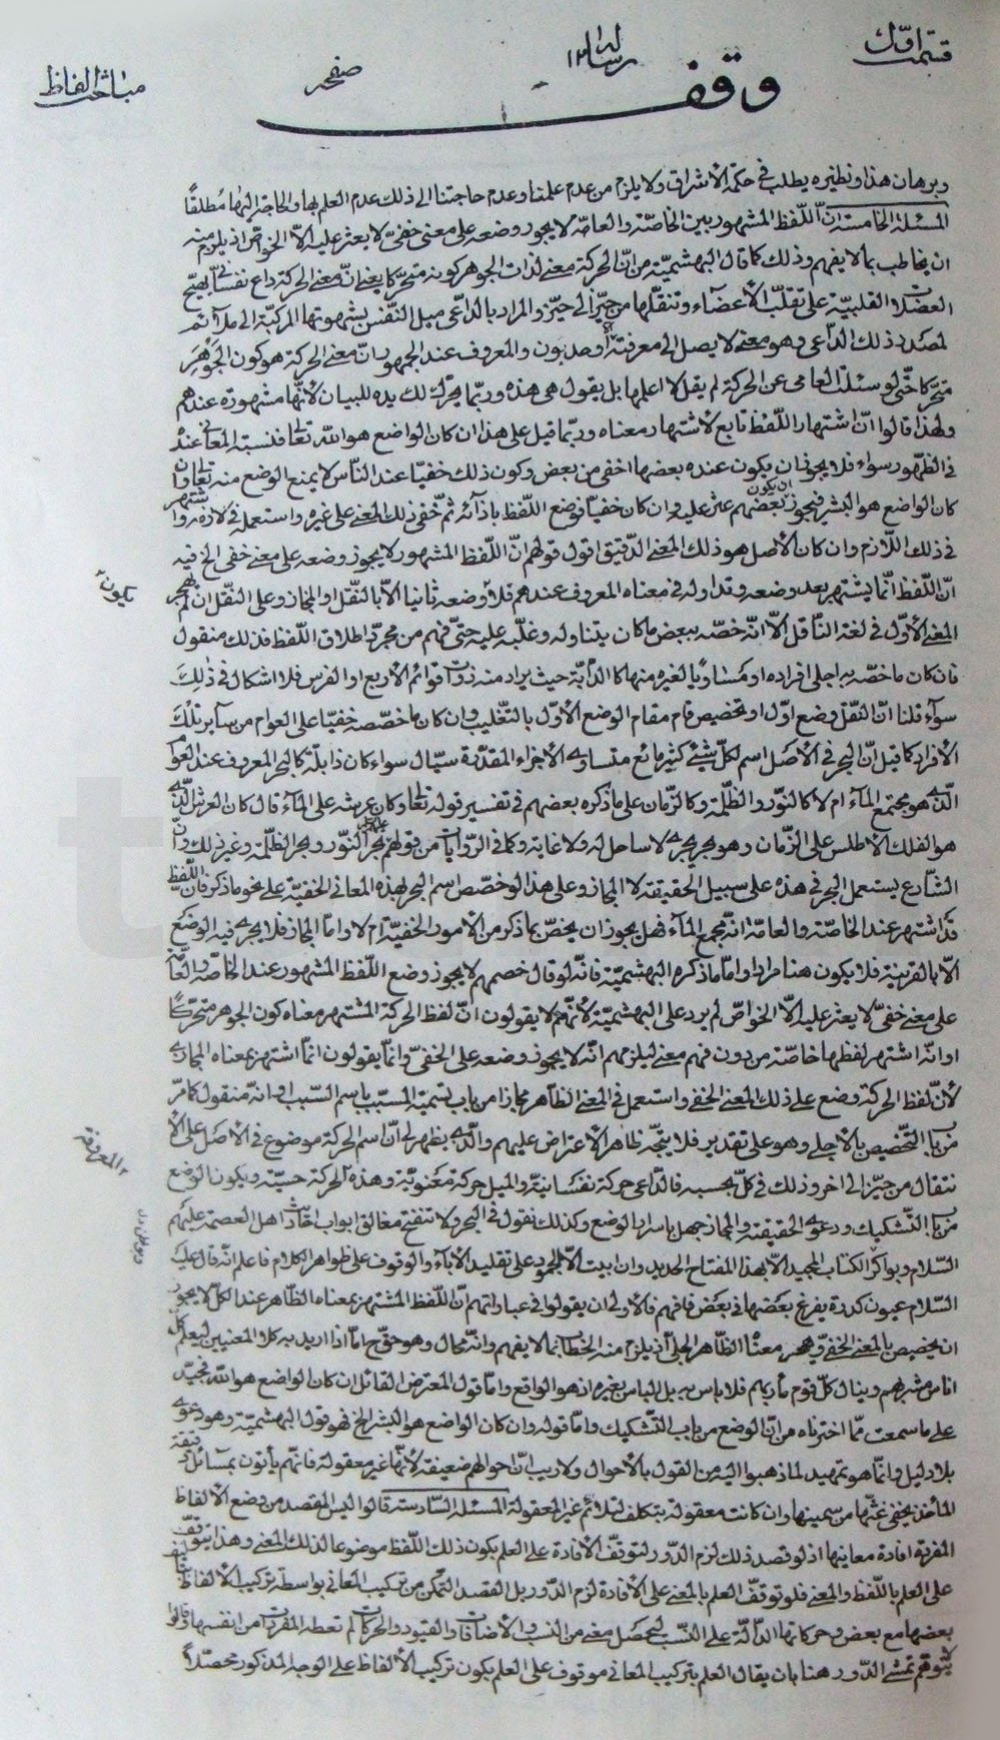 قسمت اول
رساله ١٢
صفحه
مباحث الفاظ
وقف
وبرهان هذا ونظيره يطلب فى حكمة الاشراق ولا يلزم من عدم علمنا وعدم حاجتنا الى ذلك عدم العلم بها والحاجة اليها مطلقاً
المسئلة الخامسة انّ اللّفظ المشهور بين الخاصّة والعامّة لا يجوز وضعه على معنى خفىّ لا يعثر عليه الاّ الخواص اذ يلزم منه
ان يخاطب بما لا يفهم وذلك كما قال البهشميّة من انّ الحركة معنى لذات الجوهر كونه متحركا يعنى انّ معنى الحركة داع نفسانىّ يهيّج
العضلات القلبيّة على تقلّب الأعضاء وتنقّلها من حيّز الى حيّز والمراد بالدّاعى ميل النّفس بشهوتها المركبّة الى ملائم
لمصدر ذلك الدّاعى وهو معنى لا يصل الى معرفته الاّ وحديون والمعروف عند الجمهور انّ معنى الحركة هو كون الجوهر
متحركا حتّى لو سئلت العامى عن الحركة لم يقل لا اعلمها بل يقول هى هذه وربّما يحرّك لك يده للبيان لأنّها مشهورة عندهم
ولهذا قالوا انّ اشتهار اللّفظ تابع لاشتهار معناه وربّما قيل على هذا ان كان الواضع هو الله تعالى فنسبة المعانى عنده
فى الظّهور سواء فلا يجوز ان يكون عنده بعضها اخفى من بعض وكون ذلك خفيّا عند النّاس لا يمنع الوضع منه تعالى وان
كان الواضع هو البشر فيجوز ان يكون بعضهم عثر عليه وان كان خفيّا فوضع اللّفظ بازآئه ثمّ خفى ذلك المعنى على غيره واستعمل فى لازمه واشتهر
فى ذلك اللاّزم وان كان الأصل هو ذلك المعنى الدّقيق اقول قولهم انّ اللّفظ المشهور لا يجوز وضعه على معنى خفى الخ فيه
انّ اللّفظ انّما يشتهر بعد وضعه وتداوله فى معناه المعروف عندهم فلا وضعه ثانيا الاّ بالنّقل او المجاز وعلى النّقل ان لم يهجر
يكون
المعنى الأوّل فى لغة النّاقل الاّ انّه خصّه ببعض ما كان يتناوله وغلّبه عليه حتىّ فهم من مجرّد اطلاق اللّفظ فذلك منقول
فان كان ما خصّه به اجلى افراده او مساويًا لغيره منها كالدّابّة حيث يراد منه ذوات قوائم الأربع او الفرس فلا اشكال فى ذلك
سوآء قلنا انّ النّقل وضع اوّل او تخصيص قام مقام الوضع الأوّل بالتّغليب وان كان ما خصّصه خفيّا على العوام من ساير تلك
الأفراد كما قيل انّ البحر فى الأصل اسم لكلّ شىء كثير مائع متساوى الأجزاء المقدّرة سيّال سواء كان ذا بلّة كالبحر المعروف عند العوام
الّذى هو مجتمع المآء ام لا كالنوّر والظّلمة وكالزّمان على ما ذكره بعضهم فى تفسير قوله تعالى وكان عرشه على المآء قال كان العرش الّذى
هو الفلك الأطلس على الزّمان وهو بحر يجرى لا ساحل له ولا غاية وكما فى الرّوايات من قولهم بحر النّور وبحر الظّلمة وغير ذلك وانّ
الشّارع يستعمل البحر فى هذه على سبيل الحقيقة لا المجاز وعلى هذا لو خصّص اسم البحر بهذه المعانى الخفيّة على نحو ما ذكر فانّ اللّفظ
قد اشتهر عند الخاصّة والعامّة انّه مجمع المآء فهل يجوز ان يخصّ بما ذكر من الأمور الخفيّة ام لا وامّا المجاز فلا يجرى فيه الوضع
الاّ بالقرينة فلا يكون هنا مرادا وامّا ما ذكره البهشميّة فانّه لو قال خصمهم لا يجوز وضع اللّفظ المشهور عند الخاصّة والعامّة
على معنى خفىّ لا يعثر عليه الاّ الخواصّ لم يرد على البهشميّة لأنّهم لا يقولون انّ لفظ الحركة المشتهر معناه كون الجوهر متحركًا
او انّه اشتهر لفظها خاصّة من دون فهم معنى ليلزمهم انّه لا يجوز وضعه على الخفىّ وانّما يقولون انّما اشتهر بمعناه المجازى
لأنّ لفظ الحركة وضع على ذلك المعنى الخفى واستعمل فى المعنى الظّاهر مجازا من باب تسمية المسبّب باسم السّبب او انّه منقول كما مرّ
من باب التّخصيص بالأجلى وهو على تقدير فلا يتّجه ظاهر الأعتراض عليهم والّذى يظهر لى انّ اسم الحركة موضوع فى الأصل على الأ
المعرفة
نتقال من حيّز الى اخر وذلك فى كلّ بحسبه فالدّاعى حركة نفسانيّة والميل حركة معنويّة وهذه الحركة حسيّة ويكون الوضع
من باب التّشكيك ودعوى الحقيقة والمجاز جهل باسرار الوضع وكذلك نقول فى البحر ولا تنفتح مغالق ابواب احاديث اهل العصمة عليهم
السّلام وبواكر الكتاب المجيد الاّ بهذا المفتاح الحديد وان ابيت الاّ الجمود على تقليد الأبآء والوقوف على ظواهر الكلام فاعلم انّه قال عليه
السّلام عيون كدرة يفرغ بعضها فى بعض فافهم فالأولى ان يقولوا فى عباراتهم انّ اللّفظ المشتهر بمعناه الظّاهر عند الكلّ لا يجوز
ان يخصيص بالمعنى الخفىّ ويهجر معناه الظّاهر الجلى اذ يلزم منه الخطاب بما لا يفهم وانّه محال وهو حقّ ح امّا اذا اريد به كلا المعنيين ليعلم كلّ
اناس مشربهم وينال كلّ قوم مأربهم فلا باس به بل الباس بغيره اذ هو الواقع وامّا قول المعترض القائل ان كان الواضع هو الله فجيّد
على ما سمعت ممّا اخترناه من انّ الوضع من باب التّشكيك وامّا قوله وان كان الواضع هو البشر الخ فهو قول البهشميّة وهو دعوى
بلا دليل وانّما هو تمهيد لما ذهبوا اليه من القول بالأحوال ولا ريب انّ احوالهم ضعيفة لأنّها غير معقولة فانّهم يأتون بمسائل دقيقة
المأخذ يخفى غثّها من سمينها وان كانت معقولة بتكلف لتلائم غير المعقولة المسئلة السّادسة قالوا ليس المقصد من وضع الألفاظ
المفردة افادة معانيها اذ لو قصد ذلك لزم الدّور لتوقّف الأفادة على العلم بكون ذلك اللّفظ موضوعا لذلك المعنى وهذا يتوقّف
على العلم باللّفظ والمعنى فلو توقّف العلم بالمعنى على الأفادة لزم الدّور بل القصد التمكّن من تركيب المعانى بواسطة تركيب الألفاظ
بعضها مع بعض وحركاتها الدّالّة على النّسب لتحصل معنى من النسب والأضافات والقيود والحركات لم تعطه المفردات من انفسها وقالوا
يتوهّم تمشّى الدّور هنا بان يقال العلم بتركيب المعانى موقوف على العلم بكون تركيب الألفاظ على الوجه المذكور محصّلاً